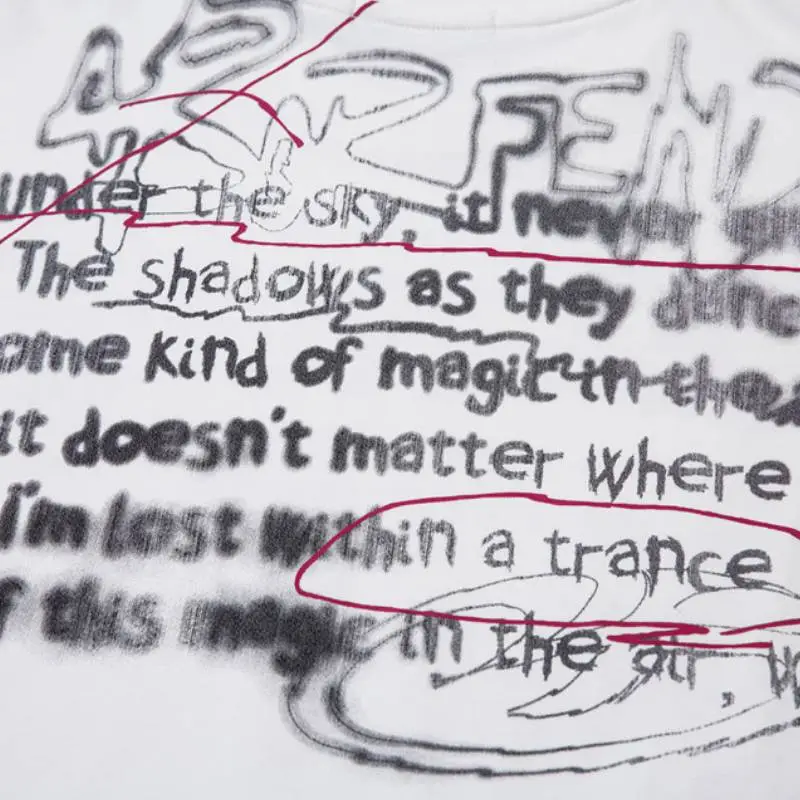 under the sky, it never
The shadows as they dance
ome kind of magic in the
it doesn't matter where
I'm lost within a trance
f this magic in the air, up